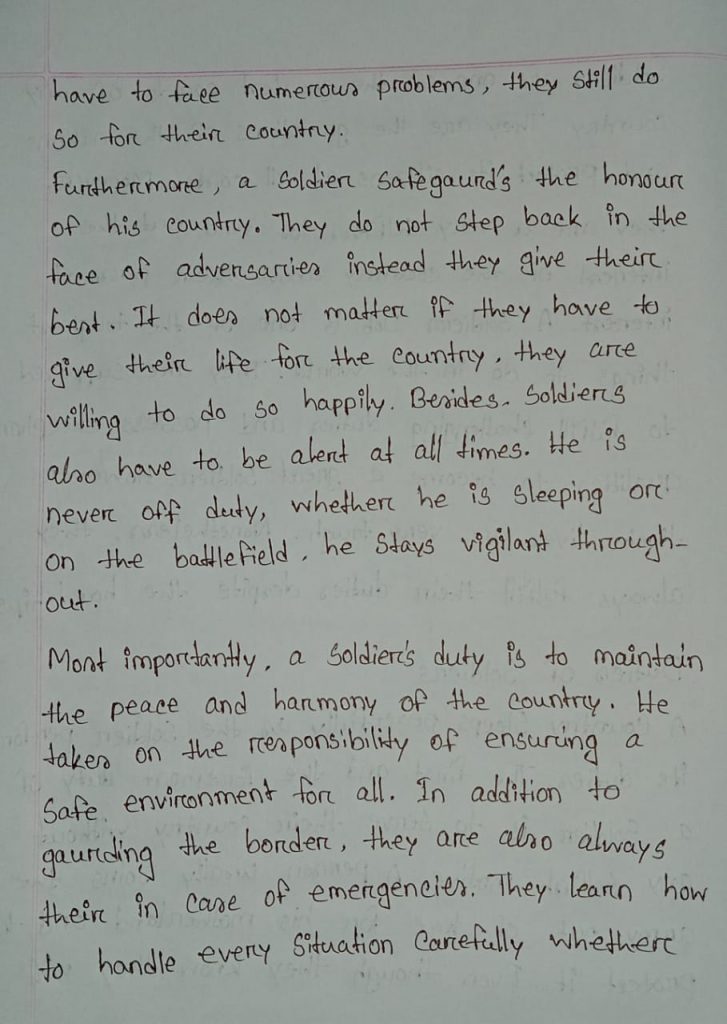 have to face numerous problems, they still do
so for their country.
Furthermore, a soldier safegaurd's the honour
of his country. They do not step back in the
face of adversarries instead they give their
best. It does not matter if they have to
give their life for the country, they are
willing to do so happily. Besides, soldiers
also have to be alert at all times. He is
never off duty, whether he is sleeping or
on the battlefield, he stays vigilant through-
out.
Most importantly, a soldier's duty is to maintain
the peace and harmony of the country. He
takes on the responsibility of ensuring a
safe environment for all. In addition to
gaurding the border, they are also always
their in case of emergencies. They learn how
to handle every situation carefully whether